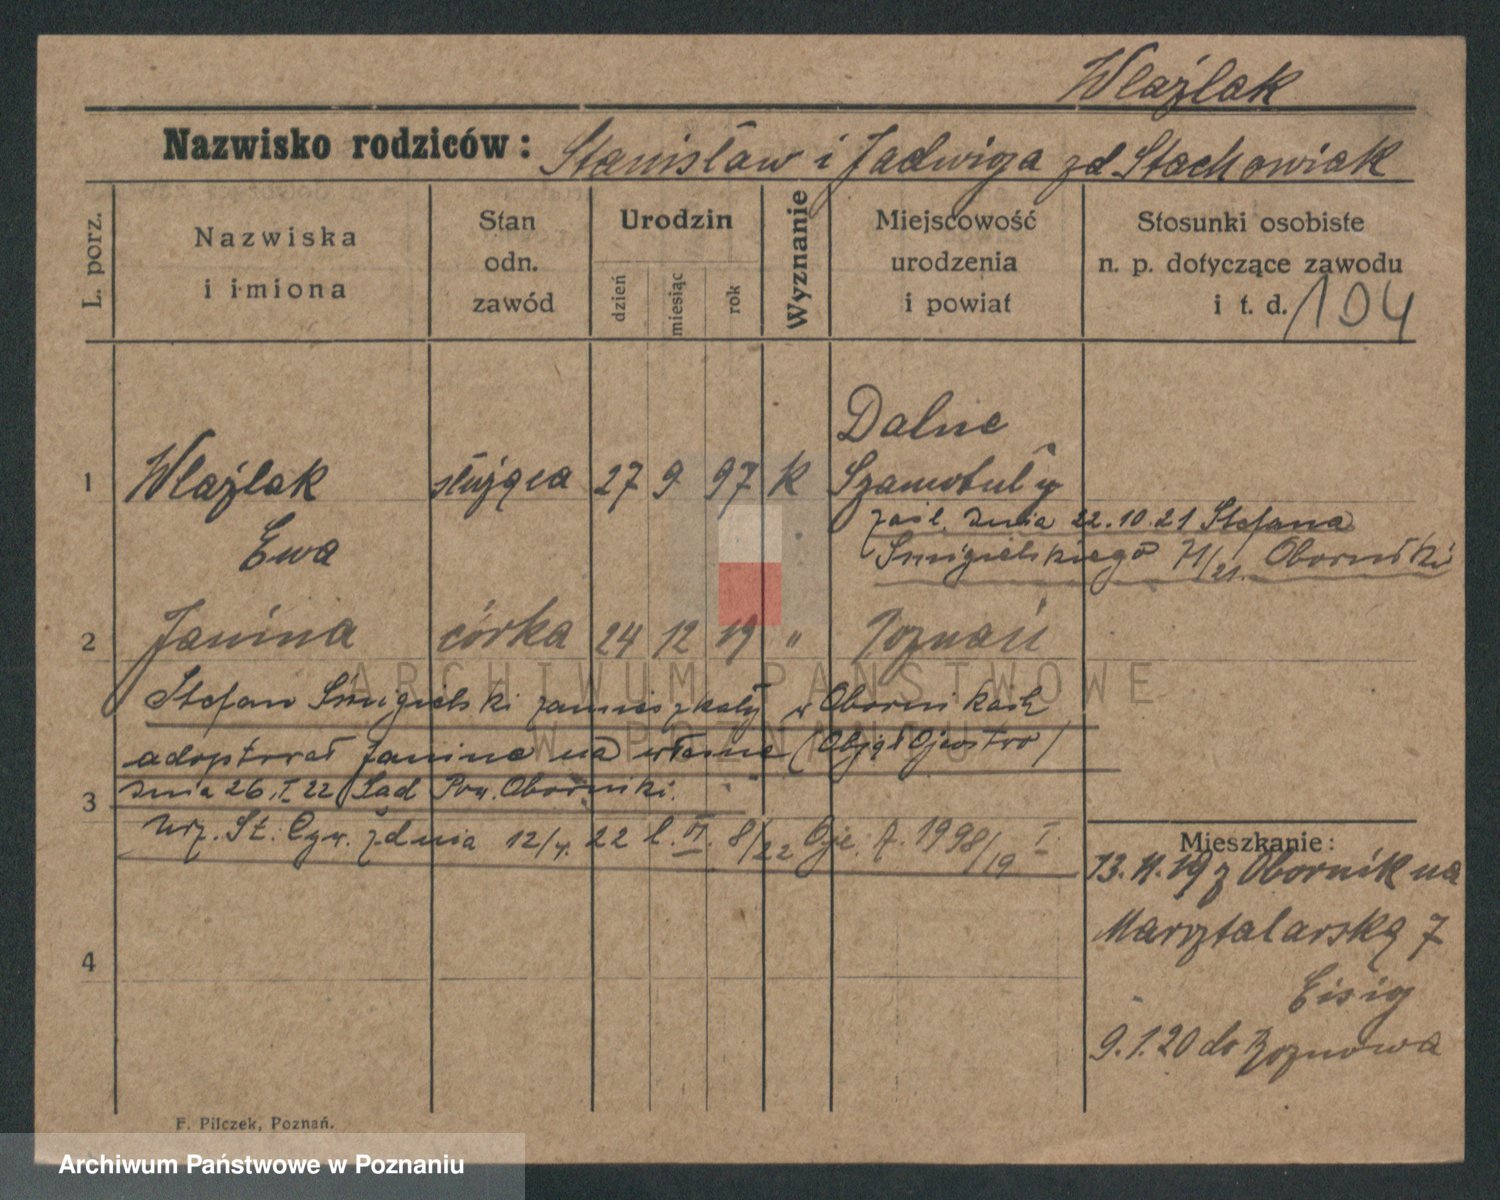 Wlaźlak
Nazwisko rodziców: Stanisław i Jadwiga zd Stachowiak
L. porz.
Nazwiska
i imiona
Stan
odn.
zawód
Urodzin
dzień
miesiąc
rok
Wyznanie
Miejscowość
urodzenia
i powiat
Stosunki osobiste
n. p. dotyczące zawodu
i t. d.
104
Dalne
1 Wlaźlak służąca 27 9 97 K Szamotuły
zaśl. dnia 22.10.21 Stefana
Ewa
Śmigielskiego 71/21. Oborniki
2 Janina córka 24 12 19 " Poznań
ARCHIWUM PAŃSTWOWE
W POZNANIU
Stefan Śmigielski zamieszkały w Obornikach
adoptował Janinę na własne (Objął Ojcostwo)
3 dnia 26.I 22 Sąd Pow. Oborniki.
Urz. St. Cyw. z dnia 12/4. 22 l. 8/22 A. 1998/19 I.
Mieszkanie:
13.11.19 z Obornik na
Marsztalarską 7
Eisig
9.1.20 do
4
F. Pilczek, Poznań.
Archiwum Państwowe w Poznaniu